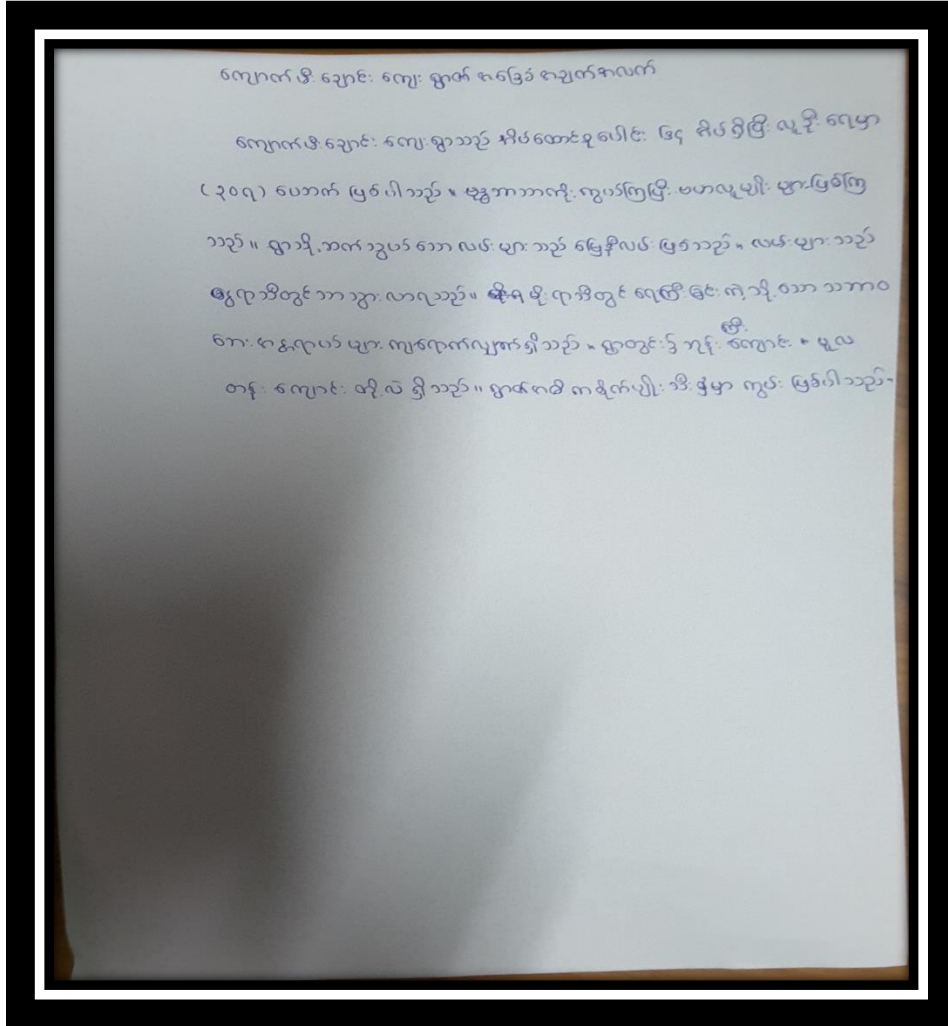 ကျောက်ဖီးချောင်း ကျေးရွာ၏ အခြေခံ အချက်အလက်
ကျောက်ဖီးချောင်း ကျေးရွာသည် အိမ်ထောင်စုပေါင်း ၆၄ အိမ်ရှိပြီး လူဦးရေမှာ
(၃၀၇) ယောက် ဖြစ်ပါသည်။ ဗုဒ္ဓဘာသာကိုးကွယ်ကြပြီး ဗမာလူမျိုး များဖြစ်ကြ
သည်။ ရွာသို့ ဆက်သွယ် သော လမ်းများ သည် မြေနီလမ်း ဖြစ်သည်။ လမ်းများ သည်
နွေရာသီတွင်သာ သွားလာရသည်။ မိုးရာသီတွင် ရေကြီးခြင်း ကဲ့သို့ သော သဘာဝ
ဘေး အန္တရာယ် များ ကျရောက်လျှက်ရှိသည်။ ရွာတွင်း၌ ဘုန်းကြီးကျောင်း ၊ မူလ
တန်း ကျောင်း တို့လဲ ရှိသည်။ ရွာ၏အဓိကစိုက်ပျိုး သီးနှံမှာ ကွမ်း ဖြစ်ပါသည်-